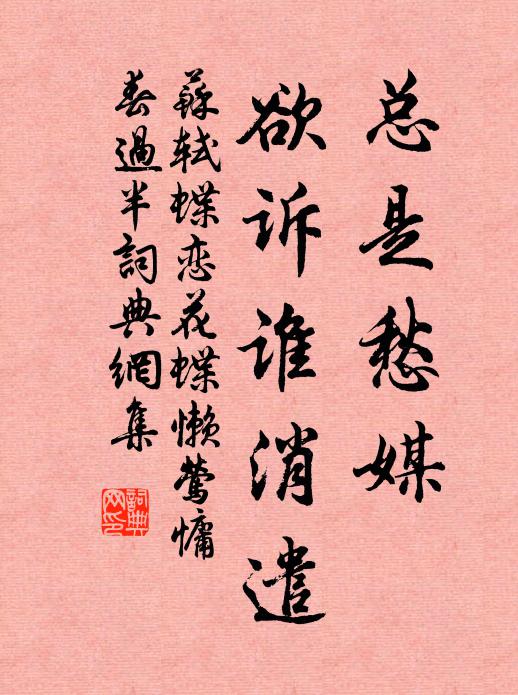 总是愁媒
欲诉谁消遣
蘇轼蝶恋花蝶懒莺慵
春過半詞典網集
詞典
网印